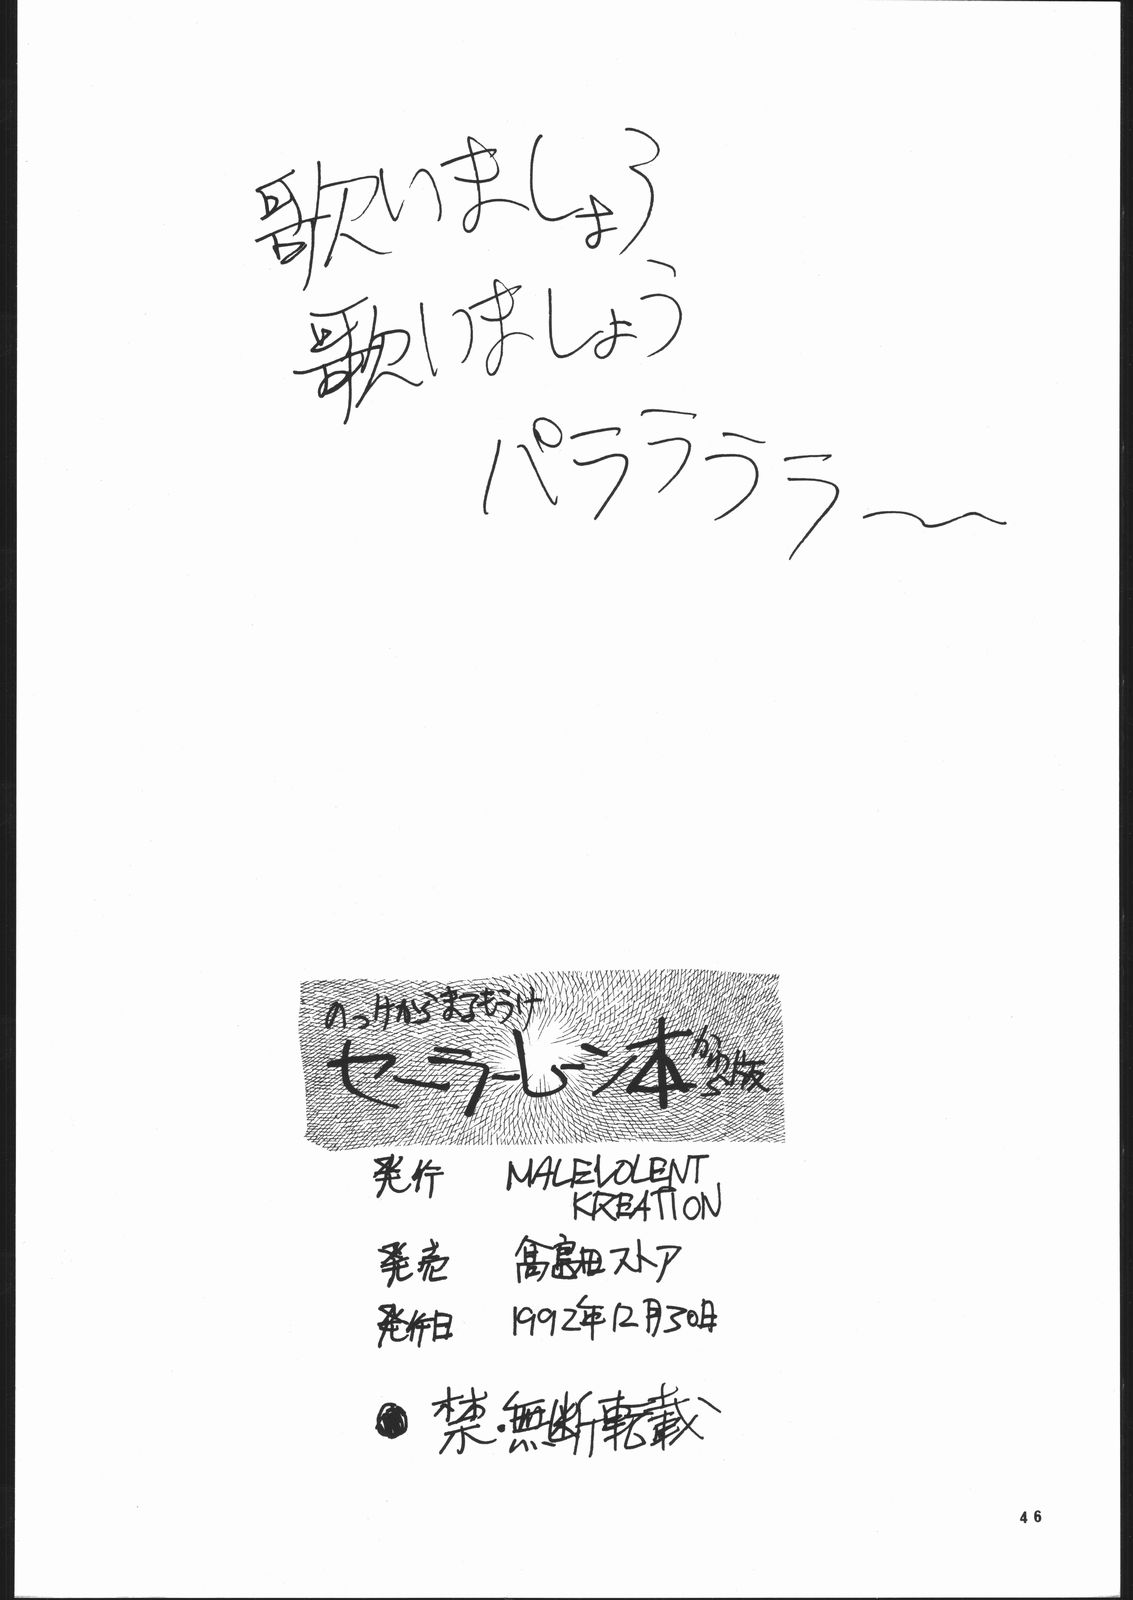 歌いましょう
歌いましょう
パララララ〜
のっけからまるもうけ
セーラームーン本 かゆら 版
発行 MALEVOLENT
KREATION
発売 高島田ストア
発行日 1992年12月30日
● 禁・無断転載
46